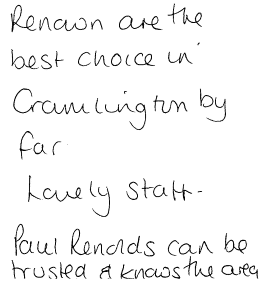 Renown are the
best choice in
Cramlington by
far.
Lovely staff -
Paul Renolds can be
trusted & knows the area